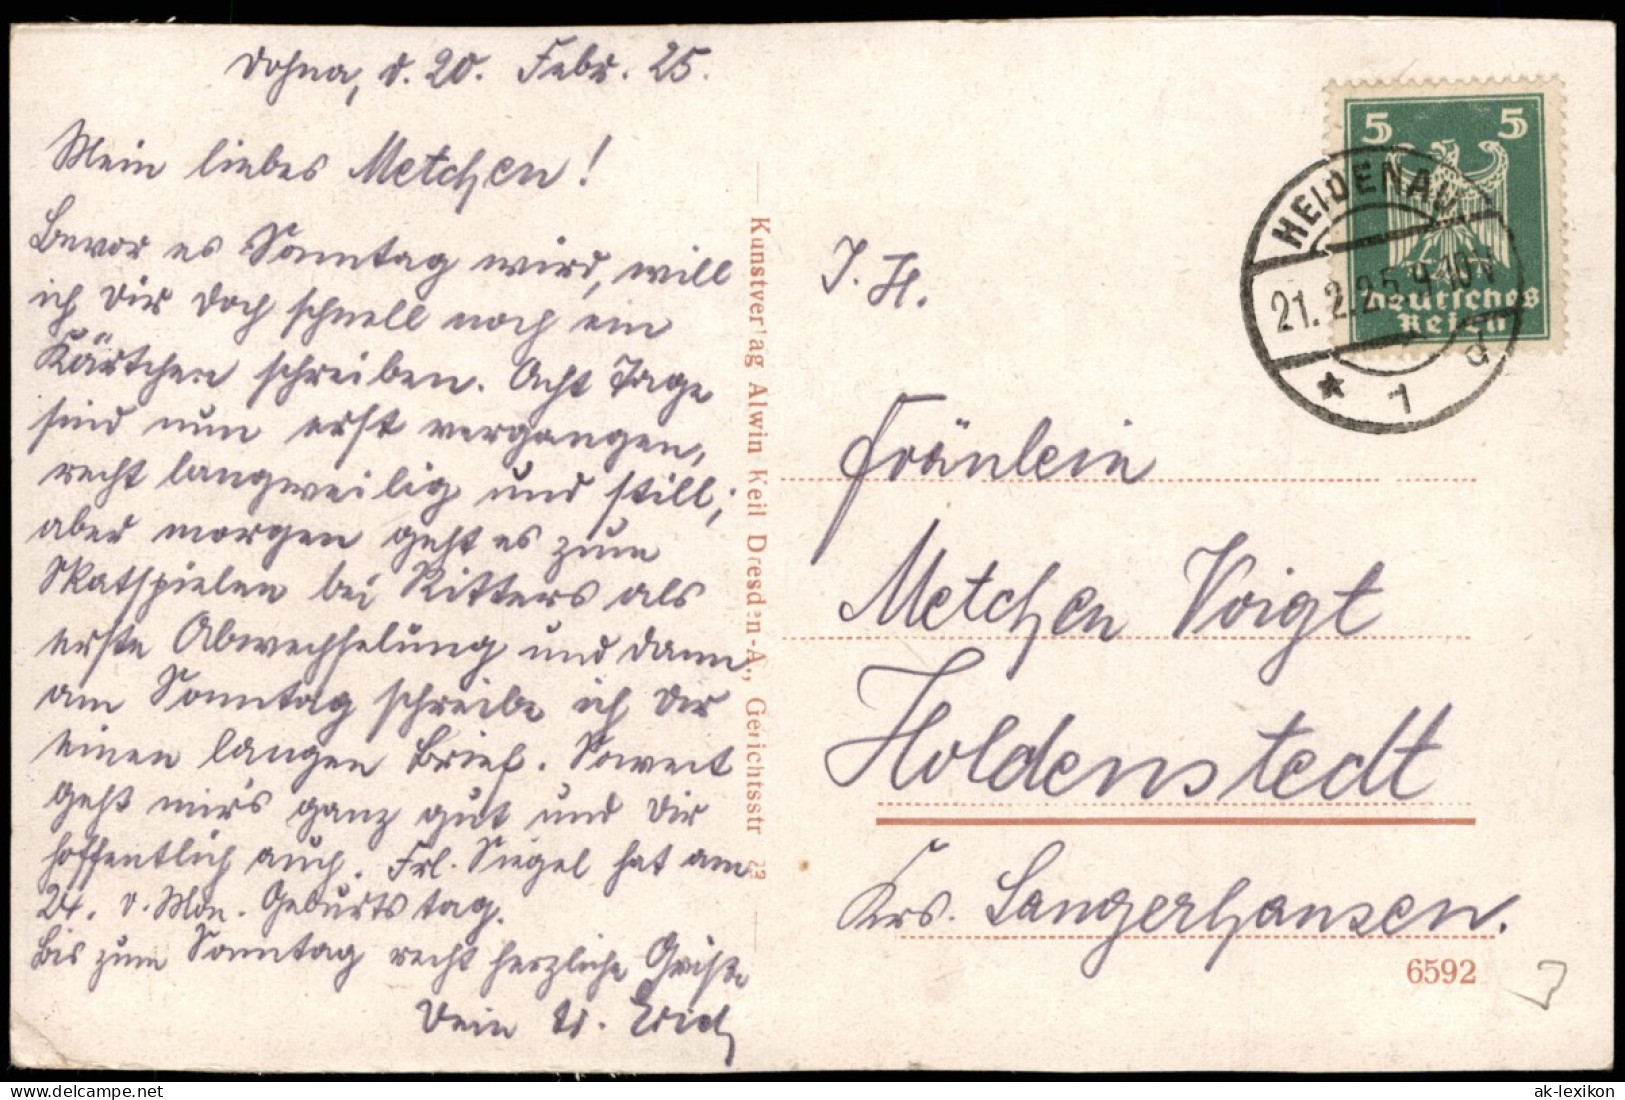 Dohna, d. 20. Febr. 25.
Mein liebes Metchen!
Bevor es Sonntag wird, will
ich Dir doch schnell noch ein
Kärtchen schreiben. Acht Tage
sind nun erst vergangen,
recht langweilig und still;
aber morgen geht es zum
Skatspielen bei Ritters als
erste Abwechselung und dann
am Sonntag schreibe ich Dir
einen langen Brief. Soweit
geht mir's ganz gut und Dir
hoffentlich auch. Frl. Siegel hat am
24. d. Mon. Geburtstag.
Bis zum Sonntag recht herzliche Grüße
Dein Erich
Kunstverlag Alwin Keil Dresden-A., Gerichtsstr 23
5 5
Deutsches
Reich
HEIDENAU
21.2.25 9-10 N
* 1 d
I. H.
Fräulein
Metchen Voigt
Holdenstedt
Krs. Sangerhausen.
6592
delcampe.net
ak-lexikon